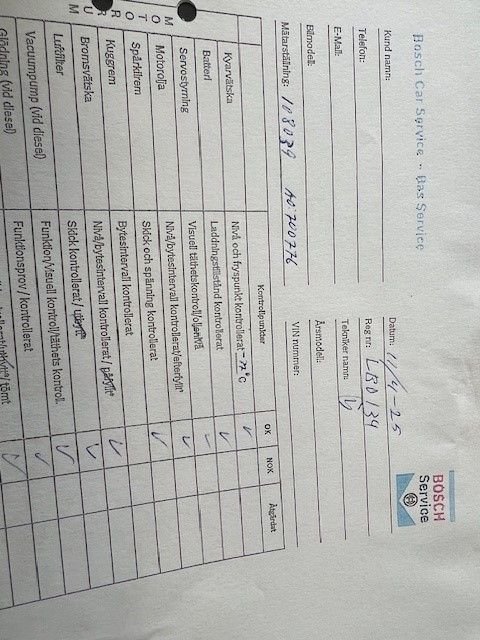 Bosch Car Service - Bas Service
BOSCH
Service
Kund namn:
Datum: 11/4-25
Telefon:
Reg nr: LBO134
E-Mail:
Tekniker namn:
Bilmodell:
Årsmodell:
Mätarställning: 108039 AO 700776
VIN nummer:
Kontrollpunkter OK NOK Åtgärdat
MOTORRUM
Kylarvätska Nivå och fryspunkt kontrollerat
Batteri Laddningstillstånd kontrollerat
Servostyrning Visuell täthetskontroll/oljenivå
Motorolja Nivå/bytesintervall kontrollerat/efterfyllt
Spårkilrem Skick och spänning kontrollerat
Kuggrem Bytesintervall kontrollerat
Bromsvätska Nivå/bytesintervall kontrollerat/ påfyllt
Luftfilter Skick kontrollerat/ utbytt
Vacuumpump (vid diesel) Funktion/visuell kontroll/täthets kontroll.
Glödning (vid diesel) Funktionsprov/ kontrollerat